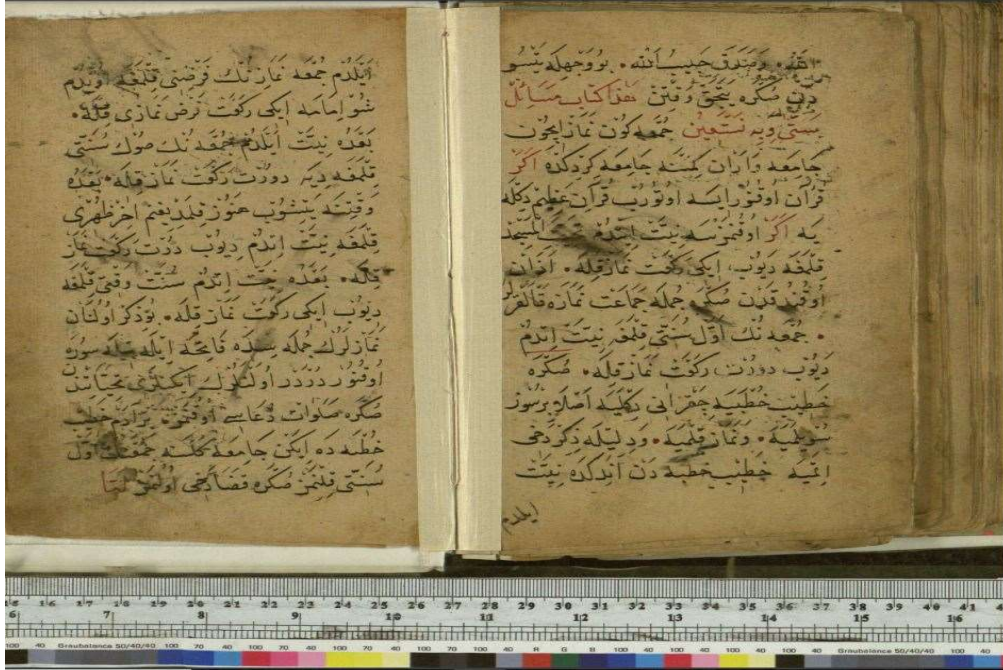 الله وصدق حبيب الله • بو وجهله يتسو
دن صكره يتجق وقتن هذا كتاب مسائل
ستى وبه نستعين جمعه كون نماز ايچون
جامعه واران كمسنه جامعه كردكده اكر
قرآن اوقنور ايسه اوتورب قرآن عظيم دكله
يه اكر اوقنمزسه نيت ايتدم تحيت المسجد
قلمغه ديوب ايكى ركعت نماز قله • اذان
اوقندقدن صكره جمله جماعت نمازه قالقرلر
• جمعه نك اول سنتى قلمغه نيت ايتدم
ديوب دورت ركعت نماز قله • صكره
خطيب خطبيه چقر انى دكليه اصلا برسوز
سويلميه • ونماز قلميه • ودليله ذكر دخى
اتميه خطيب خطبه دن اندكده نيت
ايلدم
ايلدم جمعه نمازنك فرضنى قلمغه اويدم
شو امامه ايكى ركعت فرض نمازى قله •
بعده نيت ايلدم جمعه نك صوك سنتى
قلمغه ديه دورت ركعت نماز قله • بعده
وقتنه يتشوب هنوز قلمديغم اخر ظهرى
قلمغه نيت اتدم ديوب دورت ركعت نماز
قله • بعده نيت اتدم سنت وقتى قلمغه
ديوب ايكى ركعت نماز قله • بو ذكر اولنان
نمازلرك جمله سنده فاتحه ايله بيله سوره
اوقنور دورد اولنلرك ايكنجى تحياتندن
صكره صلوات دعاسى اوقنمز • بر آدم خطيب
خطبه ده ايكن جامعه كلسه جمعه نك اول
سنتى قلنمز صكره قضا دخى اولنمز